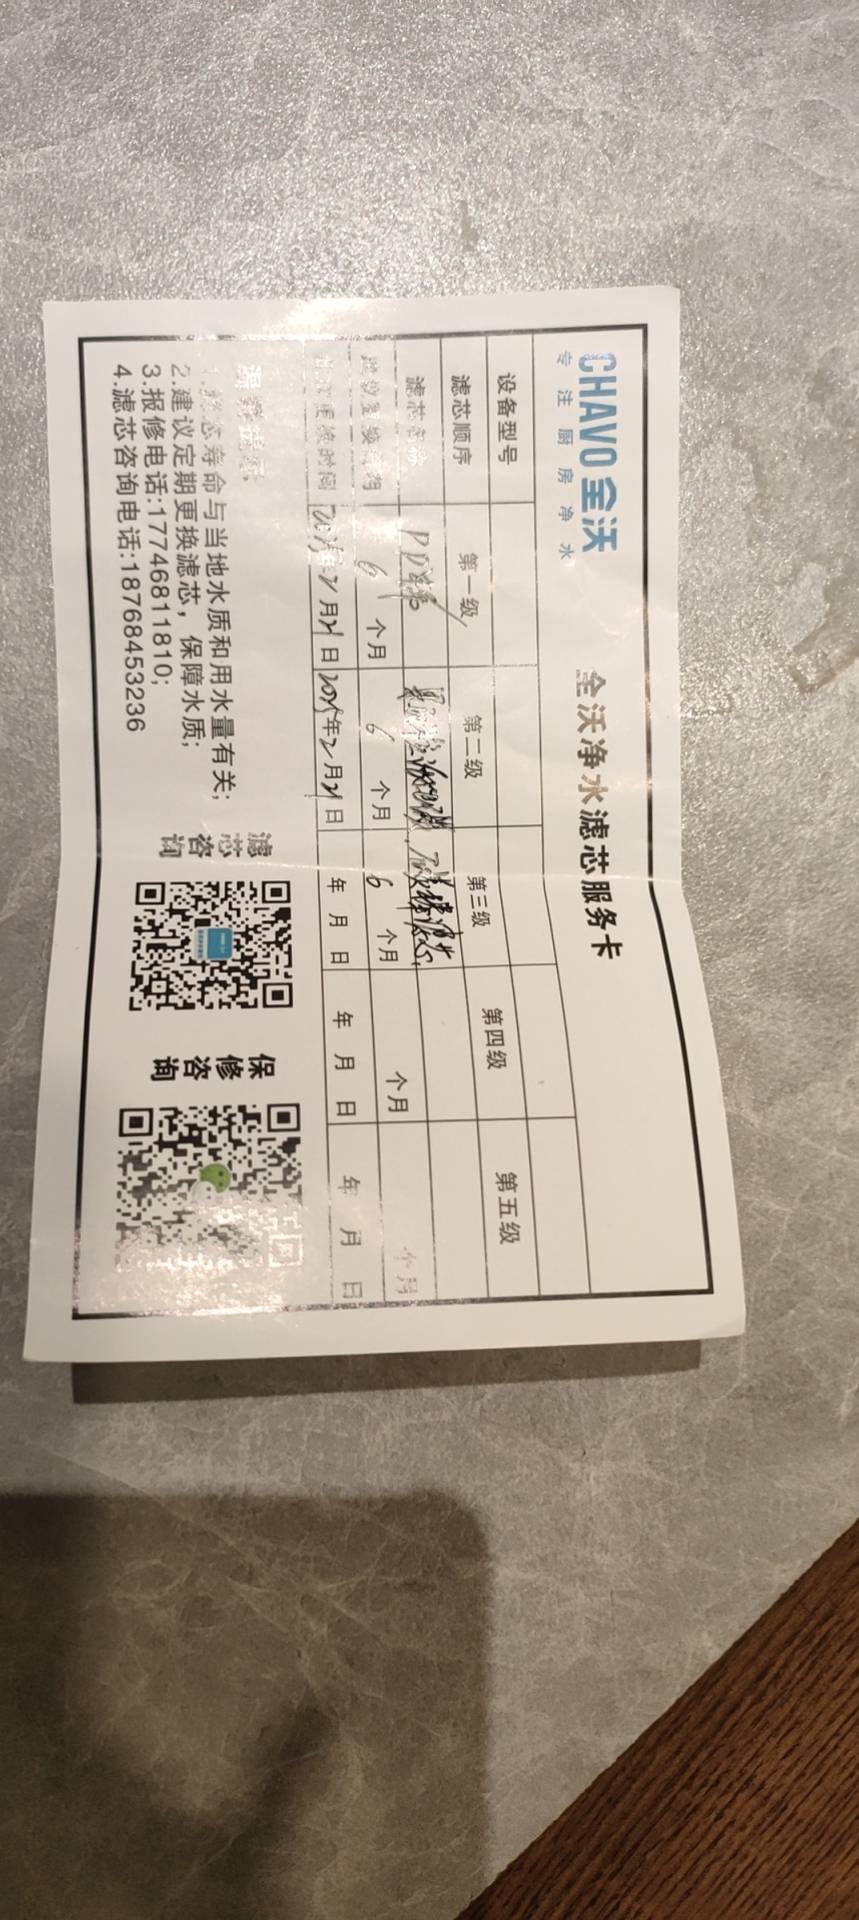 CHAVO 全沃
专注厨房净水
全沃净水滤芯服务卡
设备型号
滤芯顺序 第一级 第二级 第三级 第四级 第五级
滤芯名称
建议更换周期 6 个月 6 个月 6 个月 个月 个月
年2月21日 2025年2月21日 年 月 日 年 月 日 年 月 日
温馨提示
1.滤芯寿命与当地水质和用水量有关;
2.建议定期更换滤芯，保障水质;
3.报修电话:17746811810;
4.滤芯咨询电话:18768453236
滤芯咨询
保修咨询